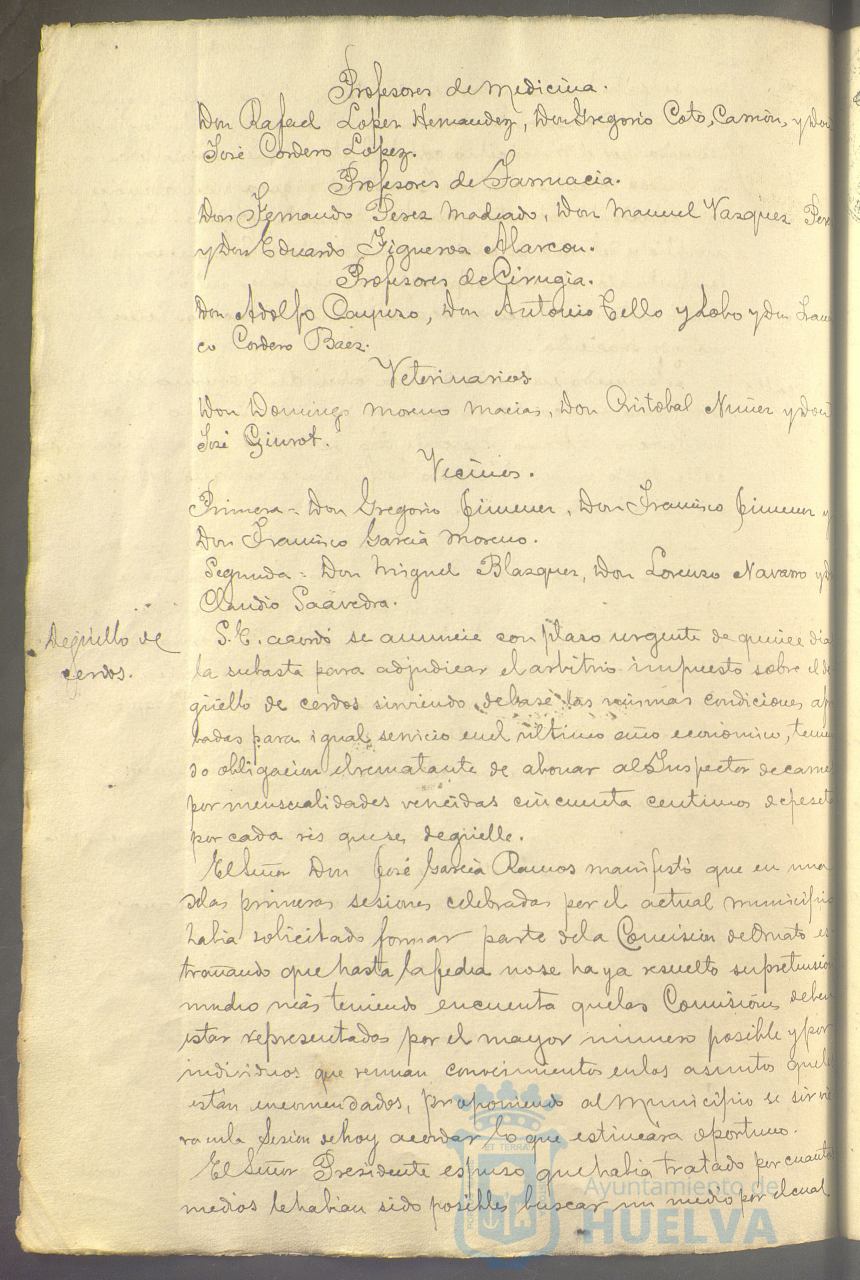 Profesores de Medicina.
Don Rafael Lopez Hernandez, Don Gregorio Coto, Camón, y Don
José Cordero Lopez.
Profesores de Farmacia.
Don Fernando Perez Machado, Don Manuel Vazquez Pere
y Don Eduardo Figueroa Alarcon.
Profesores de Cirugia.
Don Adolfo Don Antonio Tello y Lobo y Don Fran
co Cordero Baéz.
Veterinarios
Don Domingo Moreno Macias, Don Cristobal Nuñez y Don
José Ginrot.
Vecinos.
Primera = Don Gregorio Jimenez, Don Francisco Jimenez y
Don Francisco Garcia Moreno.
Segunda = Don Miguel Blazquez, Don Lorenzo Navarro y D
Claudio Saavedra.
Degüello de
cerdos.
S.E. acordó se anuncie con plazo urgente de quince dia
la subasta para adjudicar el arbitrio impuesto sobre el de
güello de cerdos sirviendo de base las mismas condiciones ap
badas para igual servicio en el último año economico, tenien
do obligacion el rematante de abonar al Inspector de carne
por mensualidades vencidas cincuenta centimos de peseta
por cada rés que se degüelle.
El Señor Don José Garcia Ramos manifestó que en una
de las primeras sesiones celebradas por el actual municipio
habia solicitado formar parte de la Comision de Ornato es
trañando que hasta la fecha no se haya resuelto su pretension
mucho más teniendo en cuenta que las Comisiones deben
estar representadas por el mayor número posible y por
individuos que reunan conocimientos en los asuntos que le
están encomendados, proponiendo al Municipio se sirvie
ra en la Sesion de hoy acordar lo que estimára oportuno.
El Señor Presidente espuso que habia tratado por cuanto
medios le habian sido posibles buscar un medio por el cual
ET TERRA
Ayuntamiento de
HUELVA